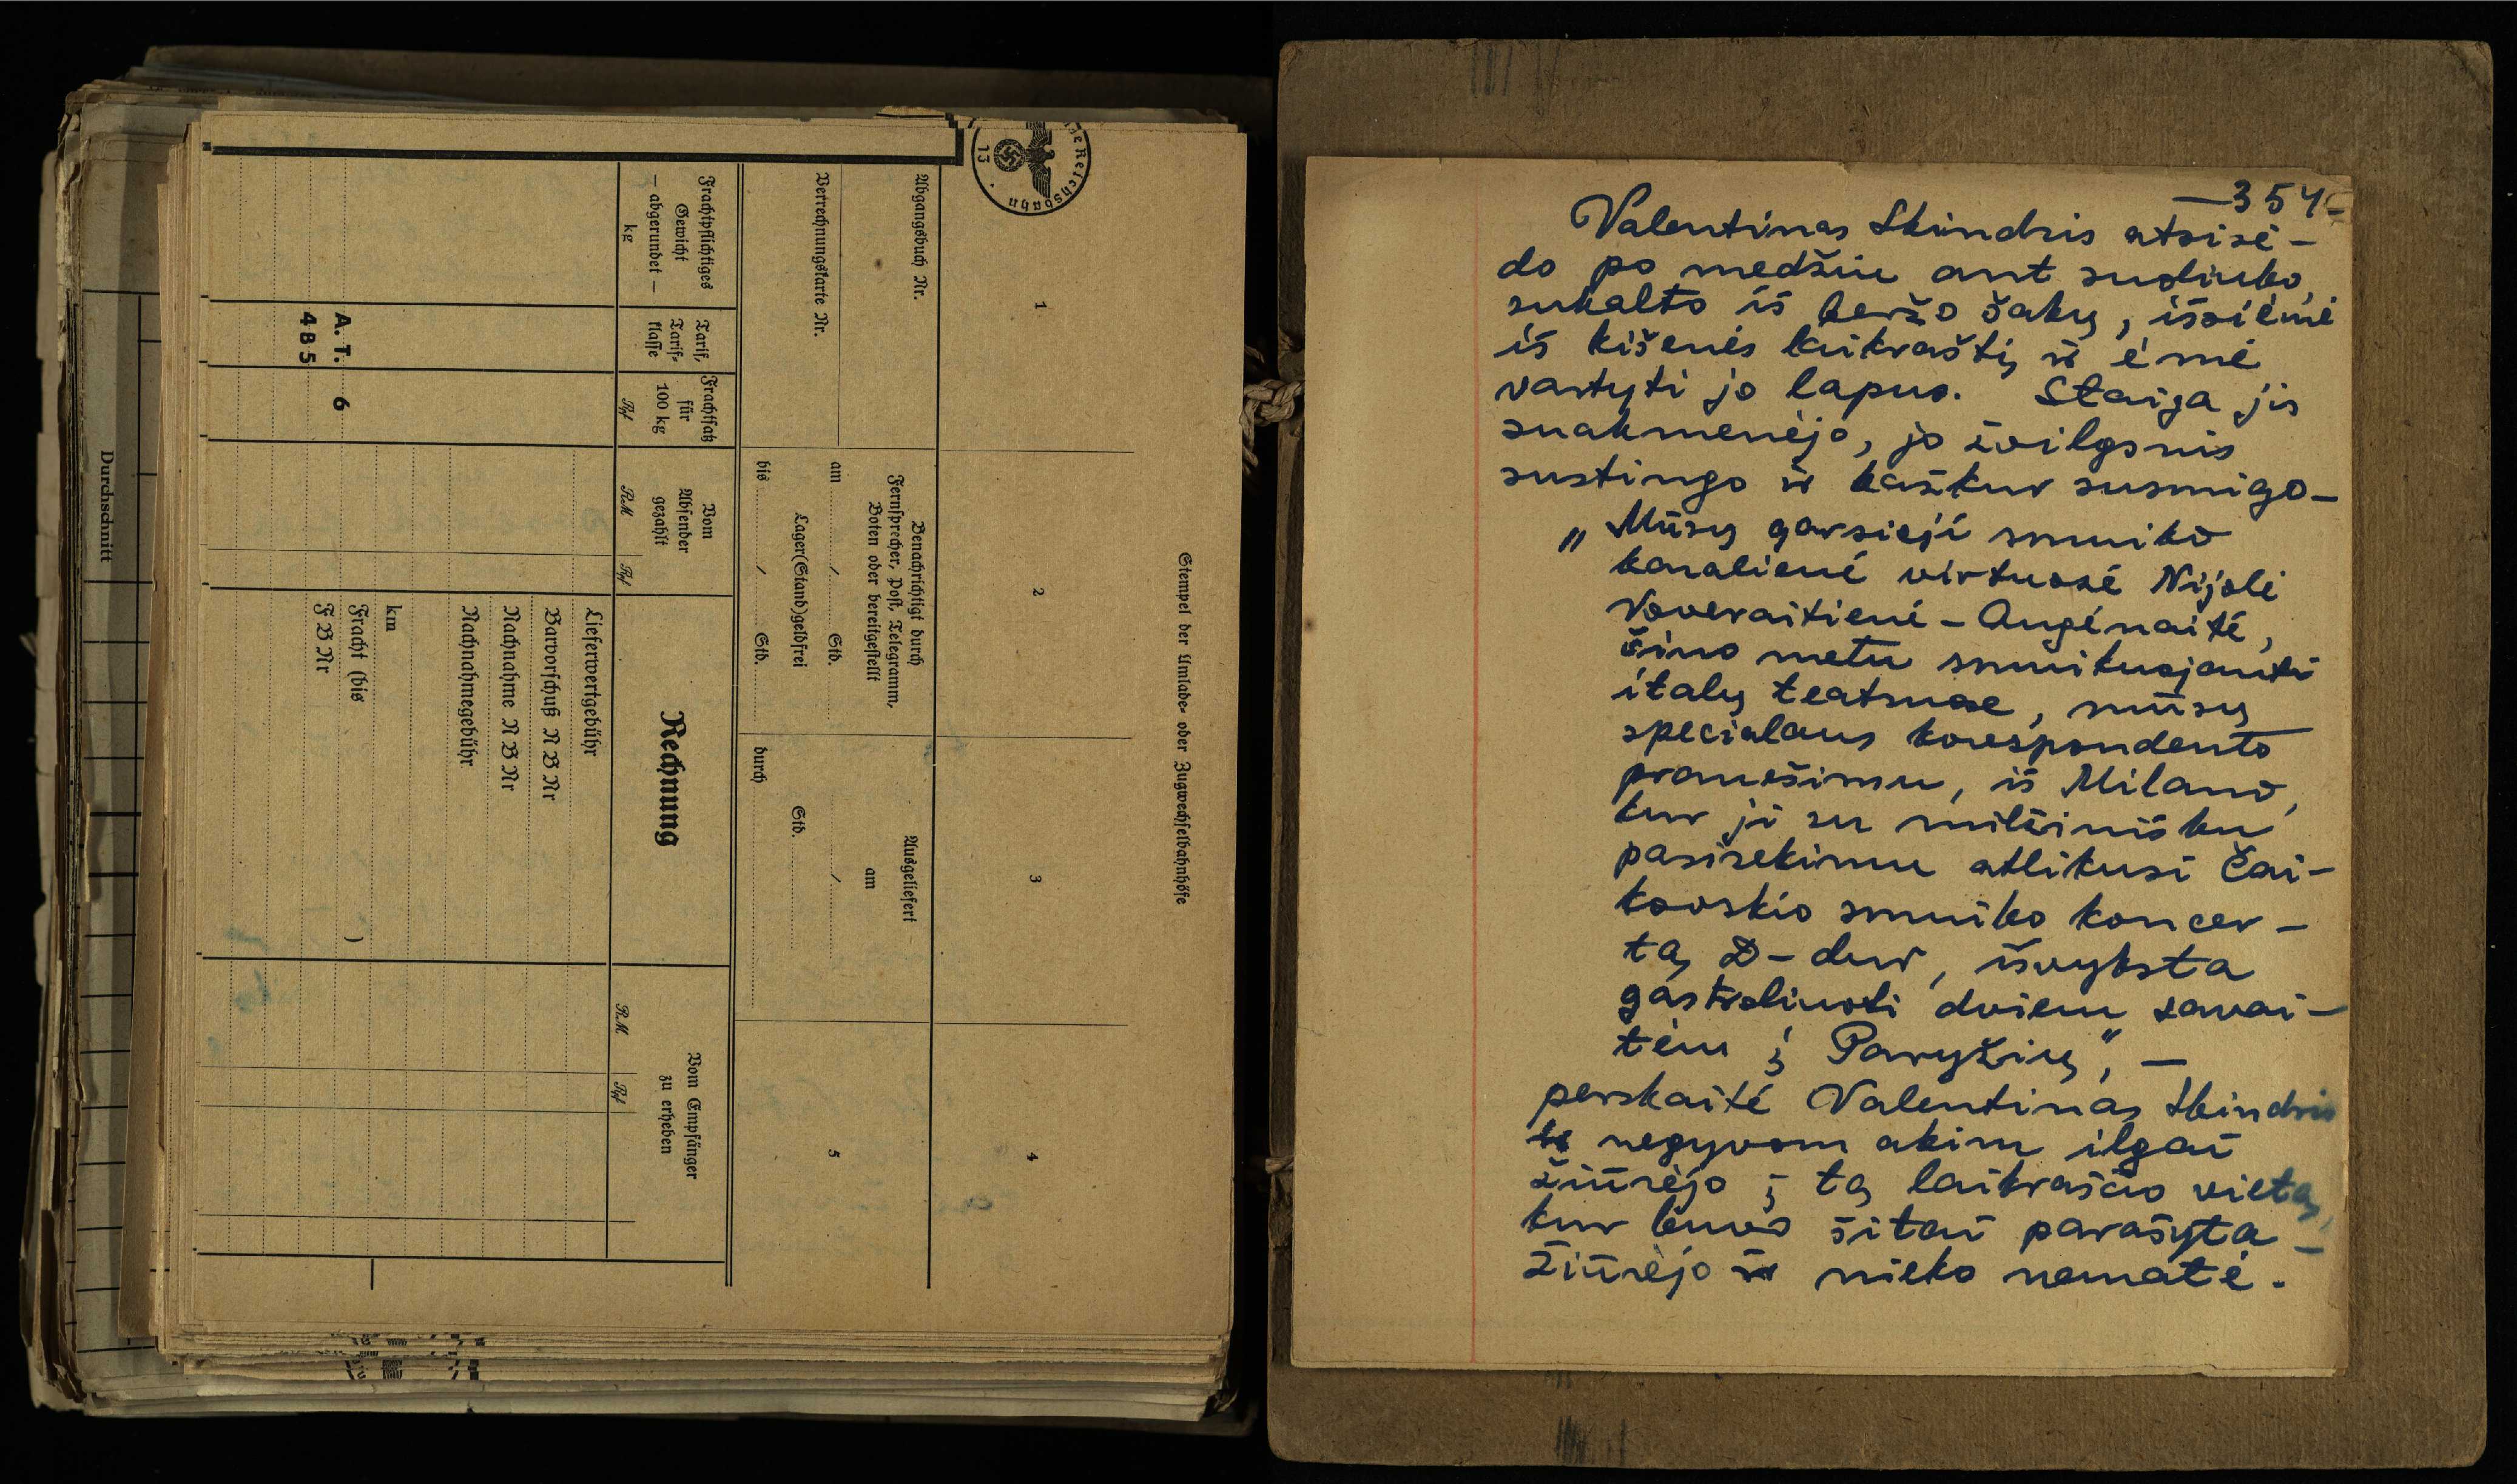 Durchschnitt
Stempel der Umlade- oder Zugwechselbahnhöfe
1
2
3
4
5
Abgangsbuch Nr.
Verrechnungskarte Nr.
Benachrichtigt durch
Fernsprecher, Post, Telegramm,
Boten oder bereitgestellt
am / Std.
Lager(Stand)geldfrei
bis / Std.
Ausgeliefert
am
/
Std.
durch
Frachtpflichtiges
Gewicht
— abgerundet —
kg
Tarif,
Tarif-
klasse
Frachtsatz
für
100 kg
Rpf
Vom
Absender
gezahlt
RM Rpf
Rechnung
Vom Empfänger
zu erheben
RM Rpf
Lieferwertgebühr
Barvorschuß N B Nr
Nachnahme N B Nr
Nachnahmegebühr
km
Fracht (bis )
F B Nr
A. T. 6
4 B 5
13
—354—
Valentinas Skindris atsisė-
do po medžiu ant suoliuko,
sukalto iš beržo šakų, išsiėmė
iš kišenės laikraštį ir ėmė
vartyti jo lapus. Staiga jis
suakmenėjo, jo žvilgsnis
sustingo ir kažkur susmigo—
„Mūsų garsioji smuiko
karalienė virtuozė Nijolė
Voveraitienė-Augėnaitė,
šiuo metu smuikuojanti
italų teatruose, mūsų
specialaus korespondento
pranešimu, iš Milano,
kur ji su milžinišku
pasisekimu atlikusi Čai-
kovskio smuiko koncer-
tą D-dur, išvyksta
gastroliuoti dviem savai-
tėm į Paryžių", —
perskaitė Valentinas Skindris
ir negyvom akim ilgai
žiūrėjo į tą laikraščio vietą,
kur buvo šitai parašyta —
žiūrėjo ir nieko nematė.